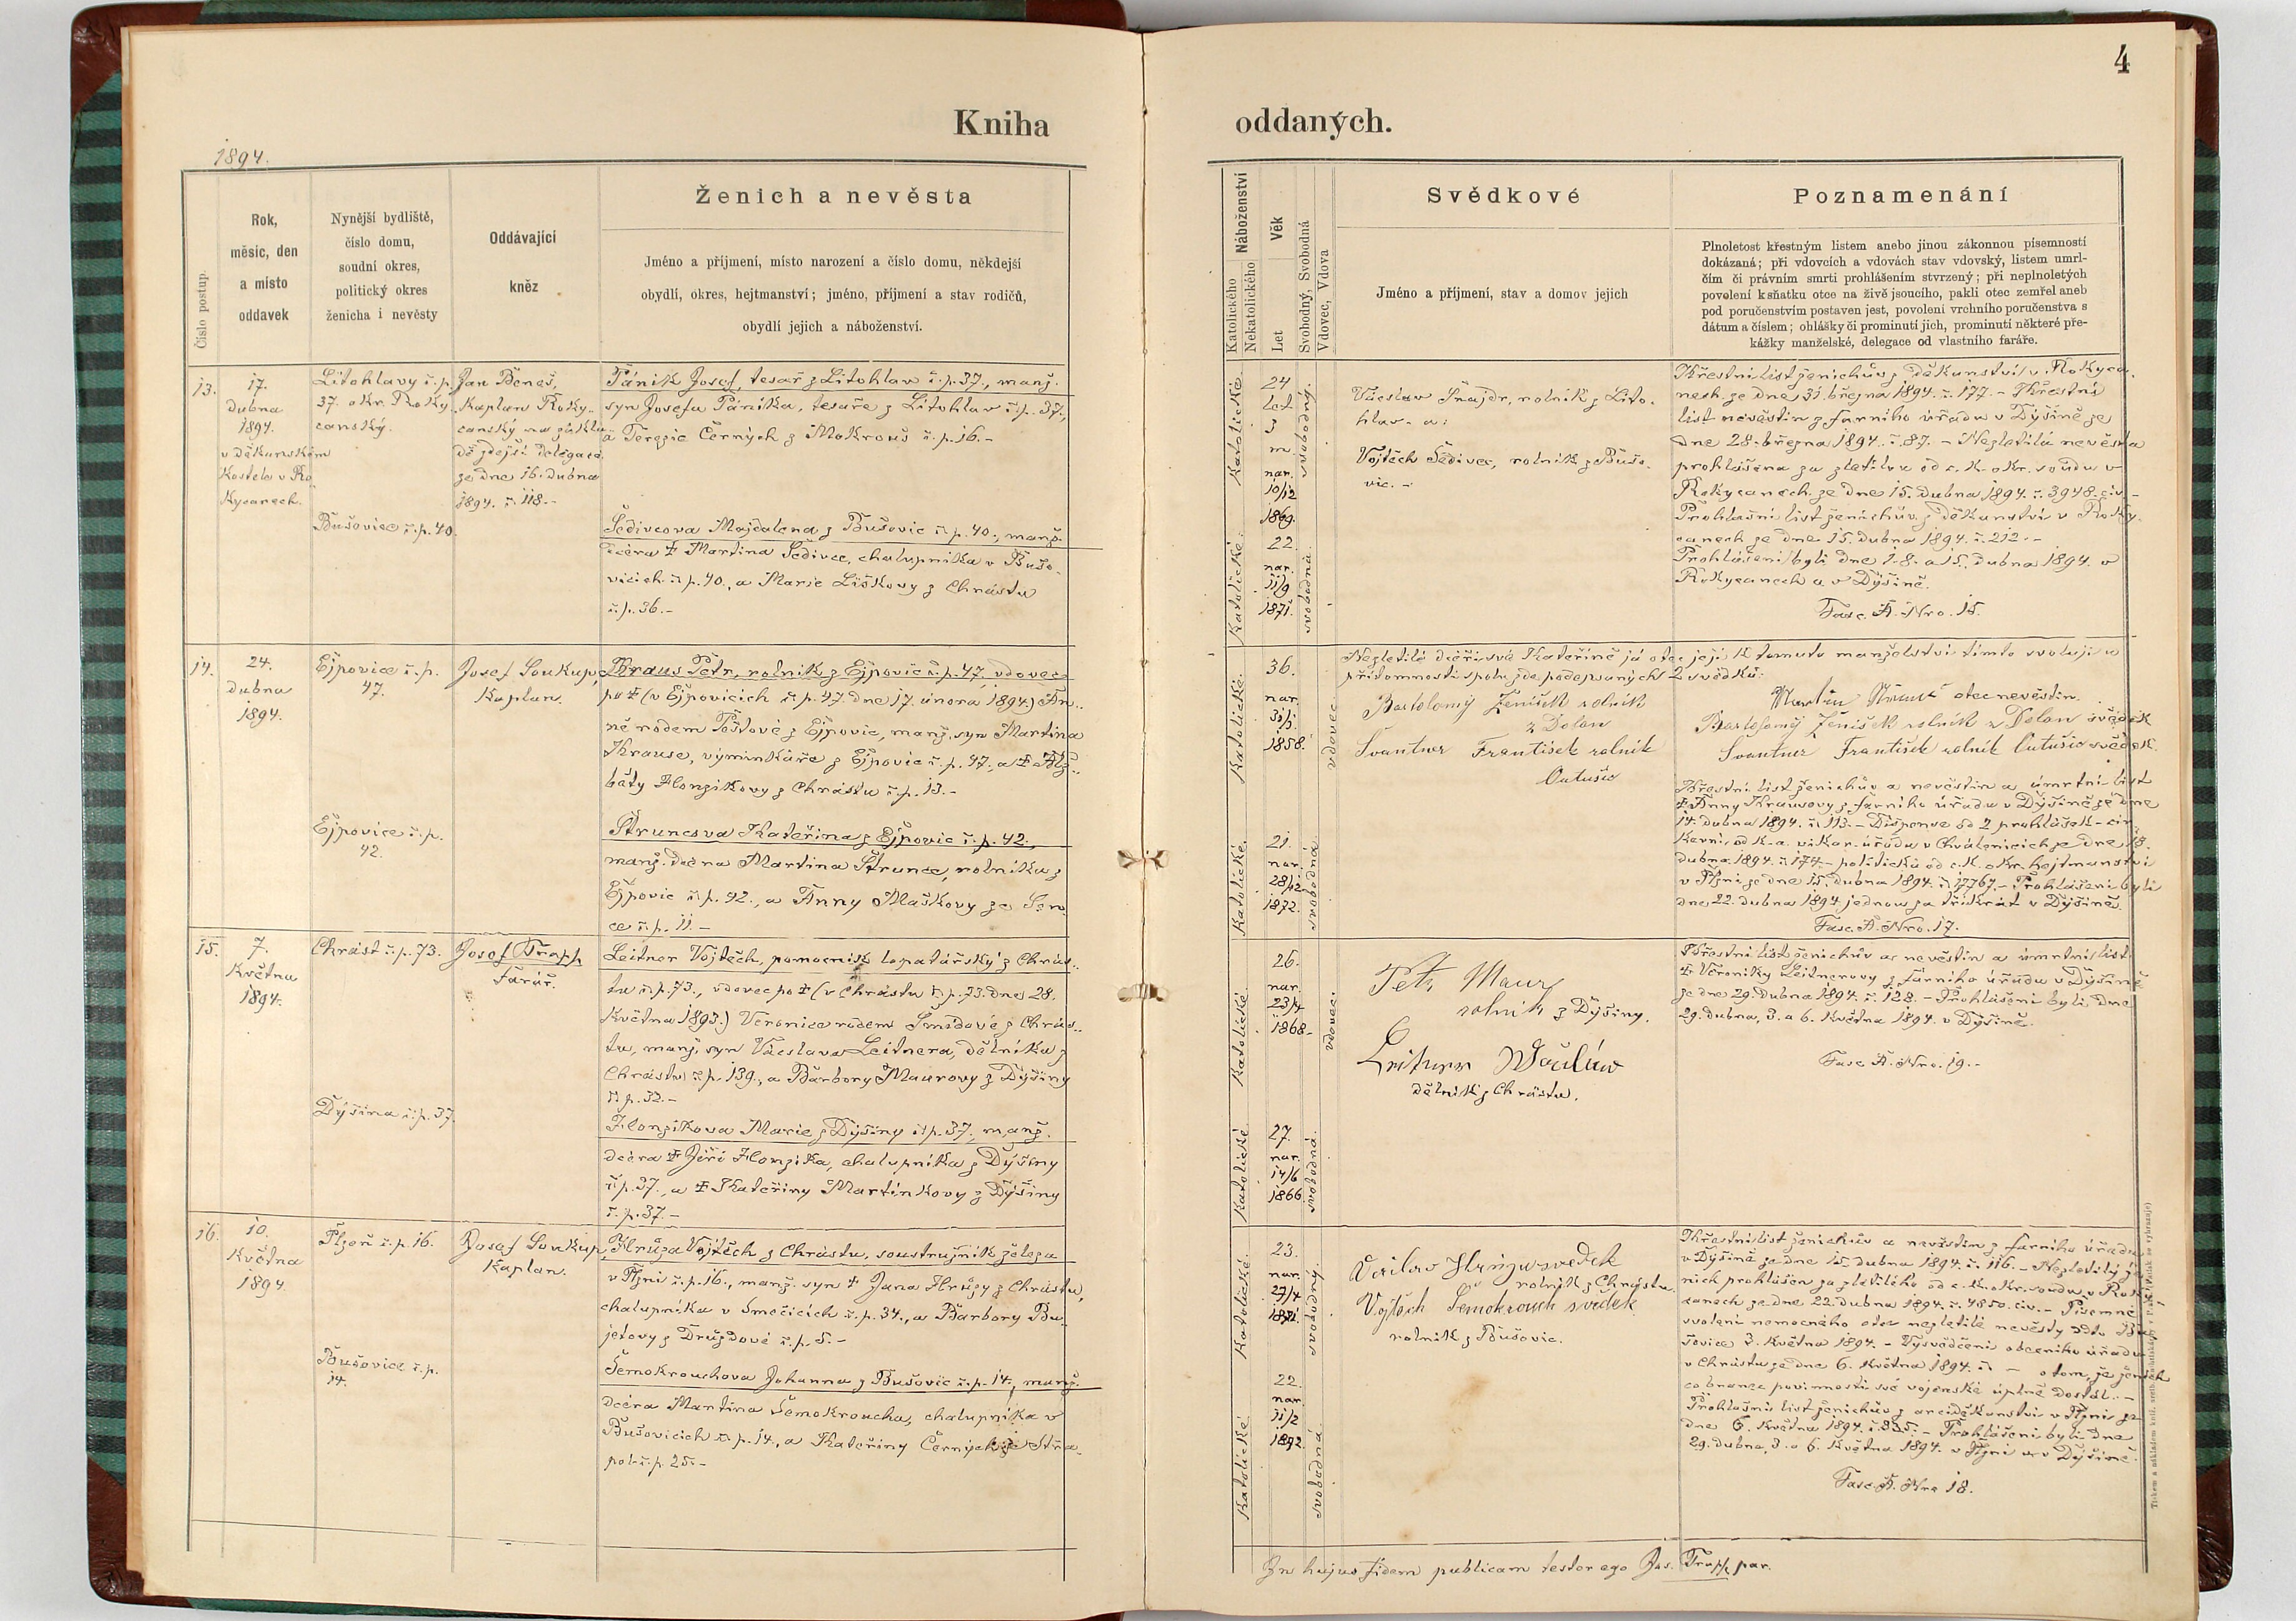 4
Kniha oddaných.
1894.
Číslo postup.
Rok,
měsíc, den
a místo
oddavek
Nynější bydliště,
číslo domu,
soudní okres,
politický okres
ženicha i nevěsty
Oddávající
kněz
Ženich a nevěsta
Jméno a příjmení, místo narození a číslo domu, někdejší
obydlí, okres, hejtmanství; jméno, příjmení a stav rodičů,
obydlí jejich a náboženství.
Náboženství
Katolického
Nekatolického
Věk
Let
Svobodný, Svobodná
Vdovec, Vdova
Svědkové
Jméno a příjmení, stav a domov jejich
Poznamenání
Plnoletost křestným listem anebo jinou zákonnou písemností
dokázaná; při vdovcích a vdovách stav vdovský, listem umrl-
čím či právním smrti prohlášením stvrzený; při neplnoletých
povolení k sňatku otce na živě jsoucího, pakli otec zemřel aneb
pod poručenstvím postaven jest, povolení vrchního poručenstva s
dátum a číslem; ohlášky či prominutí jich, prominutí některé pře-
kážky manželské, delegace od vlastního faráře.
13.
17.
dubna
1894.
v děkanském
kostele v Ro-
kycanech.
Litohlavy č.p.
37. okr. Roky-
canský.
Bušovice č.p. 40.
Jan Beneš,
kaplan Roky-
canský na zákla
dě zdejší delegace
ze dne 16. dubna
1894. č. 118.-
Pánik Josef, tesař z Litohlav č.p. 37., manž.
syn Josefa Pánika, tesaře z Litohlav č.p. 37.,
a Terezie Černých z Mokrouš č.p. 16.-
Šedivcova Majdalena z Bušovic č.p. 40., manž.
dcera † Martina Šedivce, chalupníka v Bušo-
vicích č.p. 40., a Marie Liškovy z Chrástu
č.p. 36.-
katolické
24
let
3
m
nar.
10/12
1869.
svobodný
katolické
22.
nar.
11/9
1871.
svobodná
Václav Šnajdr, rolník z Lito-
hlav. a:
Vojtěch Šedivec, rolník z Bušo-
vic.-
Křestní list ženichův z děkanství v Rokyca-
nech ze dne 31. března 1894. č. 177.- Křestní
list nevěstin z farního úřadu v Dýšině ze
dne 28. března 1894. č. 87.- Nezletilá nevěsta
prohlášena za zletilou od c. k. okr. soudu v
Rokycanech ze dne 15. dubna 1894. č. 3948. civ.-
Prohlašní list ženichův z děkanství v Roky-
canech ze dne 15. dubna 1894. č. 212.-
Prohlášeni byli dne 1. 8. a 15. dubna 1894. v
Rokycanech a v Dýšině.
Fasc. A. Nro. 15.
14.
24.
dubna
1894.
Ejpovice č.p.
47.
Ejpovice č.p.
42.
Josef Soukup,
kaplan.
Kraus Petr, rolník z Ejpovic č.p. 47. vdovec
po † (v Ejpovicích č.p. 47. dne 17. února 1894.) An-
ně rodem Toštové z Ejpovic, manž. syn Martina
Krause, výminkáře z Ejpovic č.p. 47., a † Alž-
běty Hlonzikovy z Chrástu č.p. 13.-
Štruncova Kateřina z Ejpovic č.p. 42.,
manž. dcera Martina Štrunce, rolníka z
Ejpovic č.p. 42., a Anny Maškovy ze Sen-
ce č.p. 11.-
katolické
36.
nar.
31/1
1858.
vdovec
katolické
21.
nar.
28/12
1872.
svobodná
Nezletilé dceři své Kateřině já otec její k tomuto manželství tímto svoluji v
přítomnosti spolu zde podepsaných 2 svědků:
Bartolomý Ženíšek rolník
z Dolan
Svantner František rolník
Martin Štrunc otec nevěstin.
Bartoloměj Ženíšek rolník z Dolan svědek
Svantner František rolník svědek
Křestní list ženichův a nevěstin a úmrtní list
† Anny Krausovy z farního úřadu v Dýšině ze dne
14. dubna 1894. č. 113.- Dispense od 2 prohlášek - cír-
kevní od k. a. vikar. úřadu v Chválenicích ze dne 18.
dubna 1894. č. 174.- politická od c. k. okr. hejtmanství
v Plzni ze dne 15. dubna 1894. č. 17767.- Prohlášeni byli
dne 22. dubna 1894 jednou za třikrát v Dýšině.
Fasc. A. Nro. 17.
15.
7.
Května
1894.
Chrást č.p. 73.
Dýšina č.p. 37.
Josef Trapp
farář.
Leitner Vojtěch, pomocník lopatářský z Chrás-
tu č.p. 73., vdovec po † (v Chrástu č.p. 73. dne 28.
Května 1893.) Veronice rodem Šmídové z Chrás-
tu, manž. syn Václava Leitnera, dělníka z
Chrástu č.p. 139., a Barbory Maurovy z Dýšiny
č.p. 32.-
Hlonzikova Marie z Dýšiny č.p. 37., manž.
dcera † Jiří Hlonzika, chalupníka z Dýšiny
č.p. 37., a † Kateřiny Martinkovy z Dýšiny
č.p. 37.-
katolické
26.
nar.
23/4
1868.
vdovec.
katolické
27.
nar.
14/6
1866
svobodná.
Petr Maur
rolník z Dýšiny.
Leitner Václav
dělník z Chrástu.
Křestní list ženichův a nevěstin a úmrtní list
† Veroniky Leitnerovy z farního úřadu v Dýšině
ze dne 29. dubna 1894. č. 128.- Prohlášeni byli dne
29. dubna, 3. a 6. května 1894. v Dýšině.
Fasc. A. Nro. 19.-
16.
10.
Května
1894
Plzeň č.p. 16.
Bušovice č.p.
14.
Josef Soukup,
kaplan.
Hrůza Vojtěch z Chrástu, soustružník železa
v Plzni č.p. 16., manž. syn † Jana Hrůzy z Chrástu,
chalupníka v Smečicích č.p. 34., a Barbory Bu-
jetovy z Druzdové č.p. 5.-
Šemokrouchova Johanna z Bušovic č.p. 14., manž.
dcera Martina Šemokroucha, chalupníka v
Bušovicích č.p. 14., a Kateřiny Černých ze Střa-
pol č.p. 25.-
katolické
23.
nar.
27/4
1871.
svobodný.
katolické
22.
nar.
11/2
1872.
svobodná
Václav Hrůza svědek
rolník z Chrástu.
Vojtěch Šemokrouch svědek
rolník z Bušovic.
Křestní list ženichův a nevěstin z farního úřadu
v Dýšině ze dne 15. dubna 1894. č. 116.- Nezletilý že-
nich prohlášen za zletilého od c. k. okr. soudu v Roky-
canech ze dne 22. dubna 1894. č. 4850. civ.- Písemné
svolení nemocného otce nezletilé nevěsty ddto Bu-
šovice 3. května 1894.- Vysvědčení obecního úřadu
v Chrástu ze dne 6. května 1894. č. - o tom, že ženich
co branze povinnosti své vojenské úplně dostál.-
Prohlašní list ženichův z arciděkanství v Plzni ze
dne 6. května 1894. č. 835.- Prohlášeni byli dne
29. dubna, 3. a 6. května 1894. v Plzni a v Dýšině.
Fasc. A. Nro 18.
In hujus fidem publicam testor ego Jos. Trapp, par.